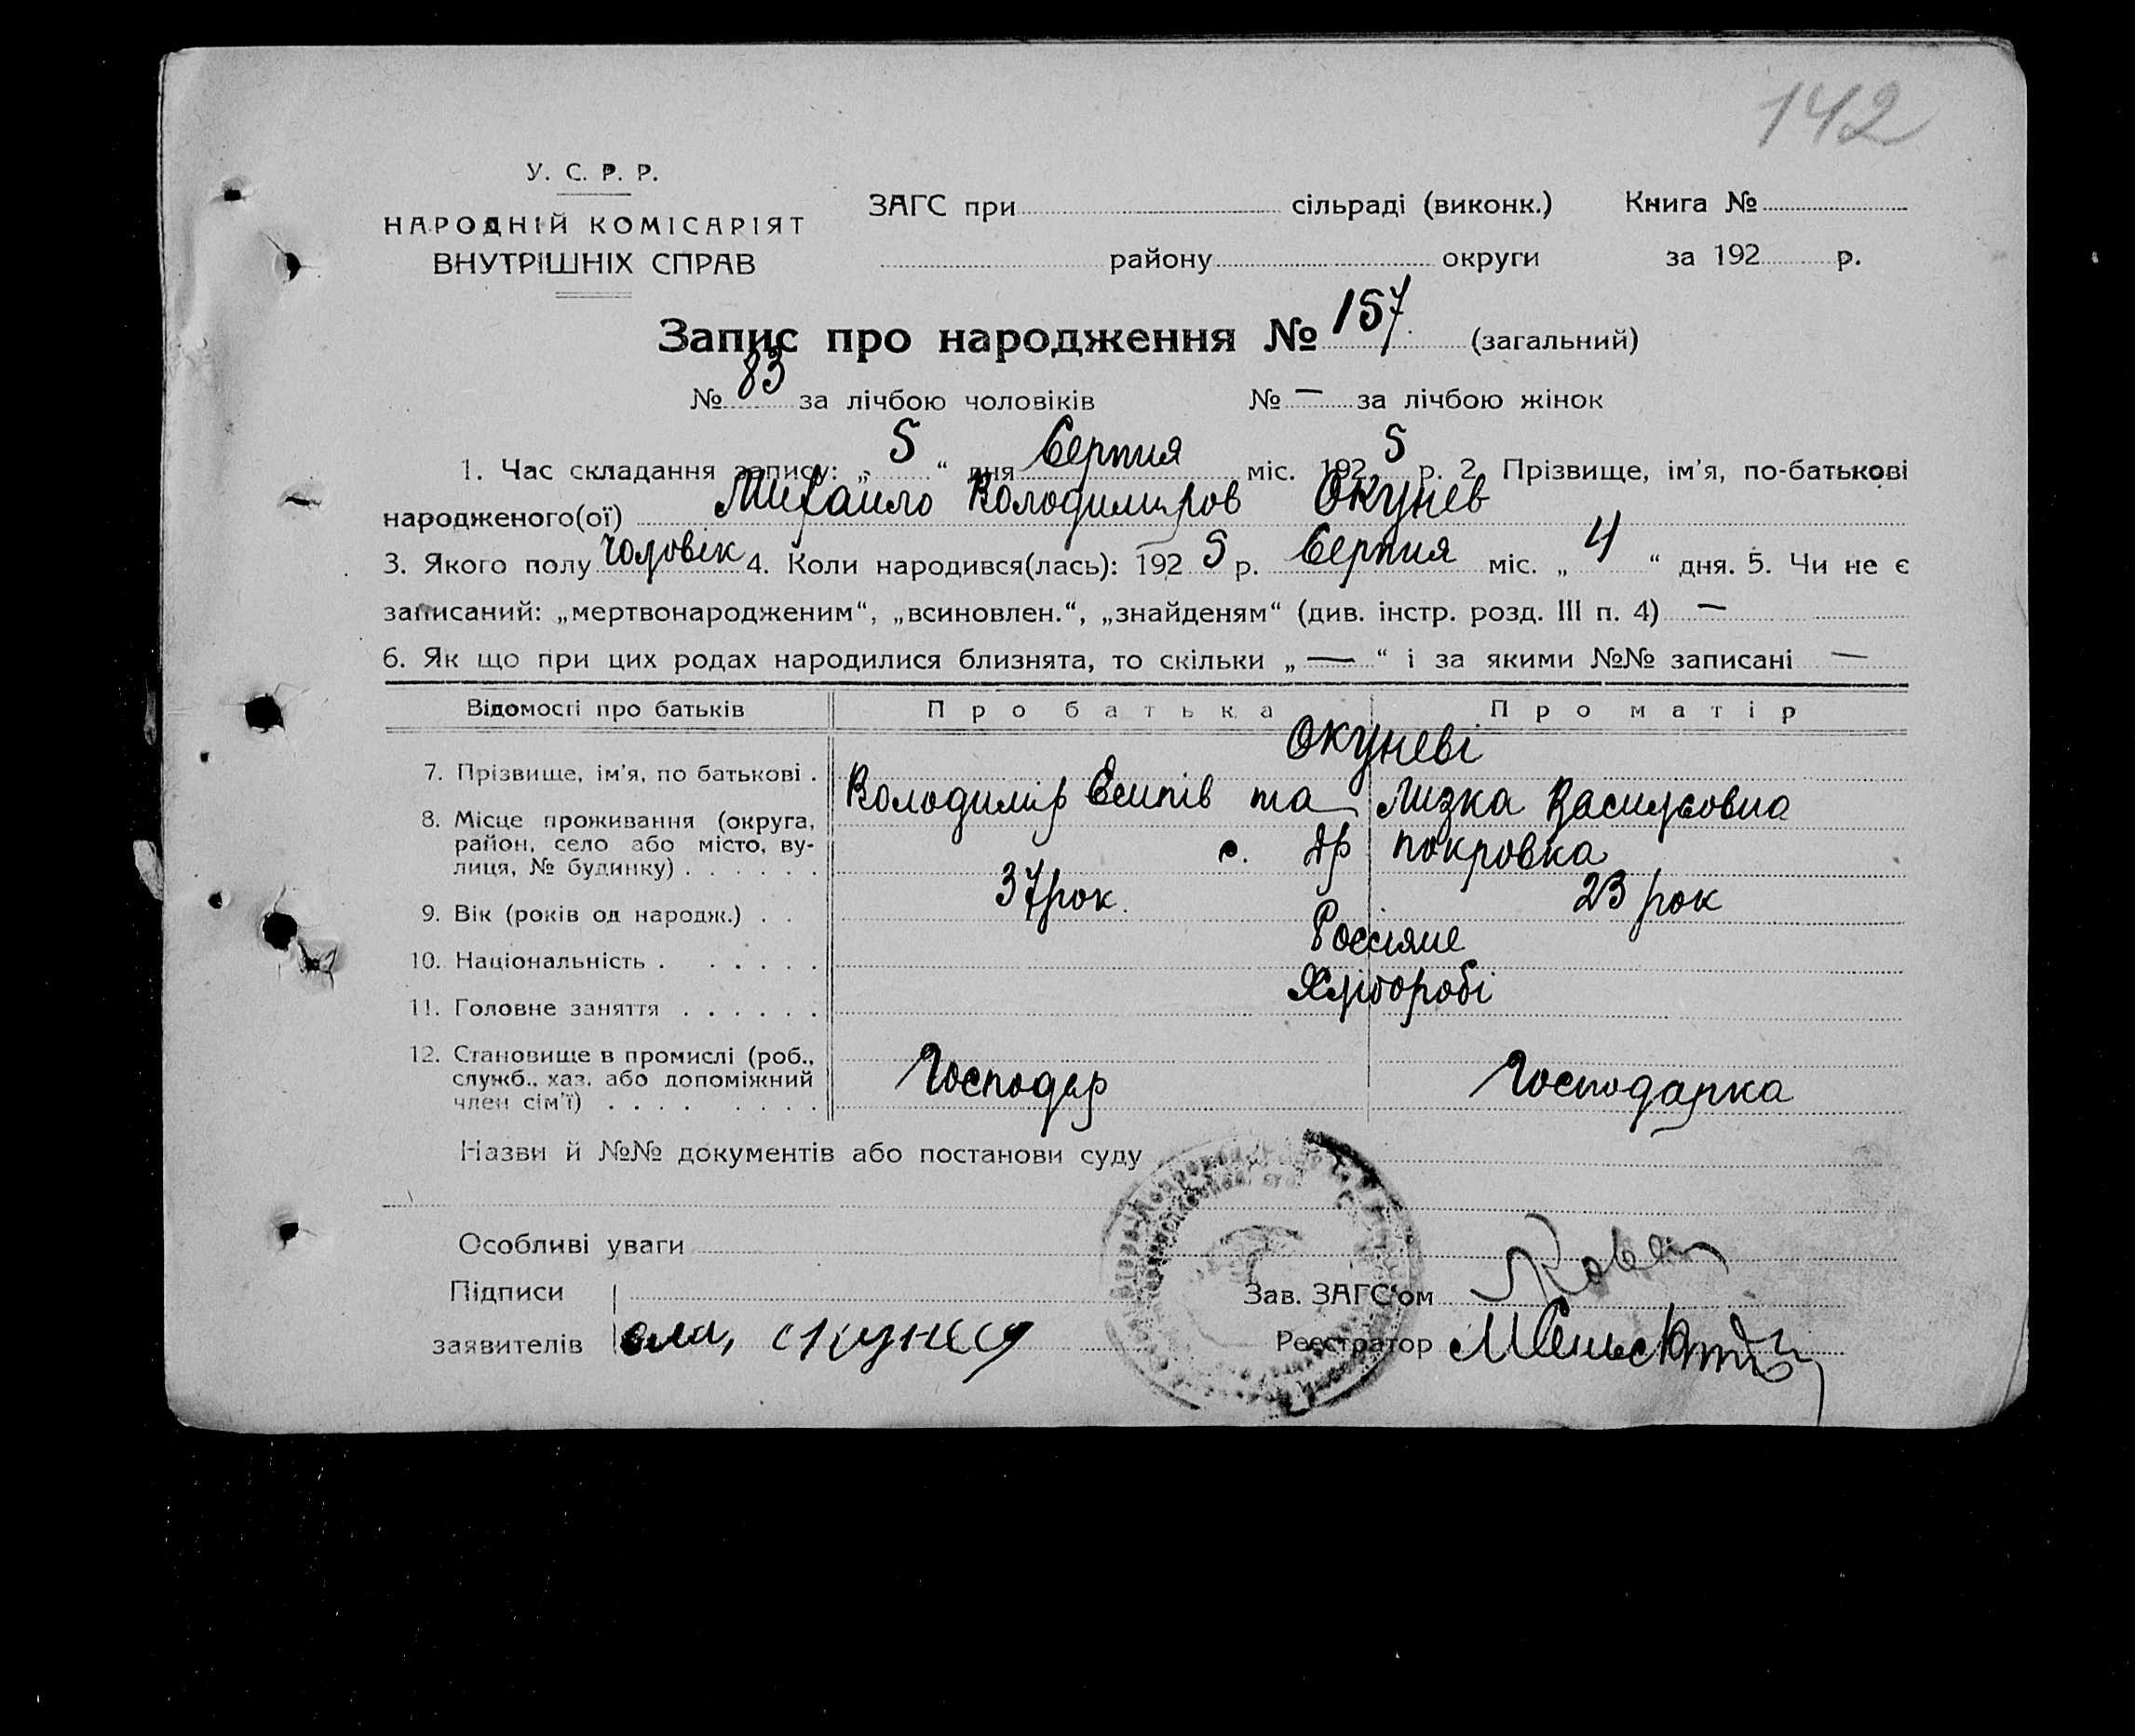 142
У. С. Р. Р.
НАРОДНІЙ КОМІСАРІЯТ
ВНУТРІШНІХ СПРАВ
ЗАГС при сільраді (виконк.) Книга №
району округи за 192 р.
Запис про народження № 157 (загальний)
№ 83 за лічбою чоловіків № — за лічбою жінок
1. Час складання запису: „ 5 “ дня Серпня міс. 192 5 р. 2. Прізвище, ім'я, по-батькові
народженого(ої) Михайло Володимиров Окунев
3. Якого полу чоловік 4. Коли народився(лась): 192 5 р. Серпня міс. „ 4 “ дня. 5. Чи не є
записаний: „мертвонародженим“, „всиновлен.“, „знайденям“ (див. інстр. розд. III п. 4) —
6. Як що при цих родах народилися близнята, то скільки „ — “ і за якими №№ записані —
Відомості про батьків Про батька Про матір
Окуневі
7. Прізвище, ім'я, по батькові . Володимір Єсипів та Лизка Васильовна
8. Місце проживання (округа,
район, село або місто, ву-
лиця, № будинку) . . . . . . с. Др покровка
9. Вік (років од народж.) . . 37 рок. 23 рок
10. Національність . . . . . . Россіяне
11. Головне заняття . . . . . . Хліборобі
12. Становище в промислі (роб.,
служб., хаз. або допоміжний
член сім'ї) . . . . . . . . Господар Господарка
Назви й №№ документів або постанови суду
Особливі уваги
Підписи Зав. ЗАГС'ом
заявителів Реєстратор